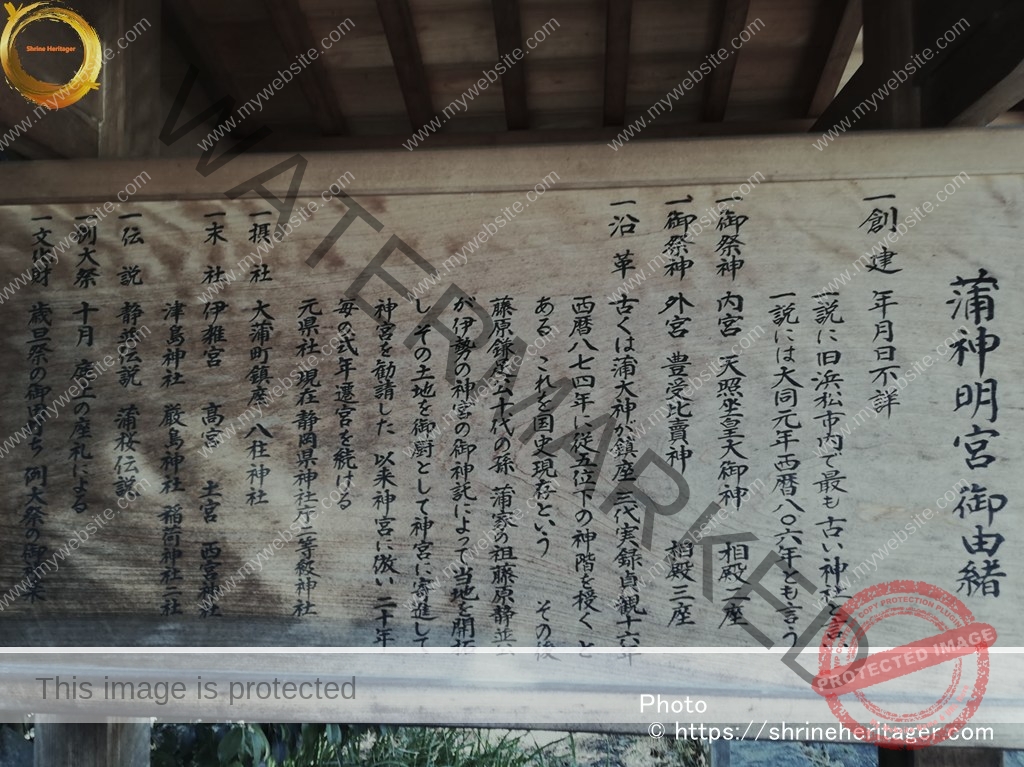 蒲神明宮 御由緒
一創建 年月日不詳
一説に旧浜松市内で最も古い神社と言い
一説には大同元年西暦八〇六年とも言う
一御祭神 内宮 天照坐皇大御神 相殿二座
一御祭神 外宮 豊受比賣神 相殿三座
一沿革 古くは蒲大神が鎮座 三代実録貞観十六年
西暦八七四年に従五位下の神階を授くと
ある これを国史現存という その後
藤原鎌足公十代の孫 蒲家の祖藤原静並公
が伊勢の神宮の御神託によって当地を開拓
し その土地を御厨として神宮に寄進して
神宮を勧請した 以来神宮に倣い 二十年
毎の式年遷宮を続ける
元県社 現在静岡県神社庁二等級神社
一摂社 大蒲町鎮座 八柱神社
一末社 伊雅宮 高宮 土宮 西宮神社
津島神社 厳島神社 稲荷神社二社
一伝説 静並伝説 蒲桜伝説
一例大祭 十月 の座札による
一文化財 歳旦祭の御田打ち 例大祭の御
Shrine Heritager
www.mywebsite.com
WATERMARKED
SOFT PROTECTION PLUGIN
PROTECTED IMAGE
This image is protected
Photo
© https://shrineheritager.com